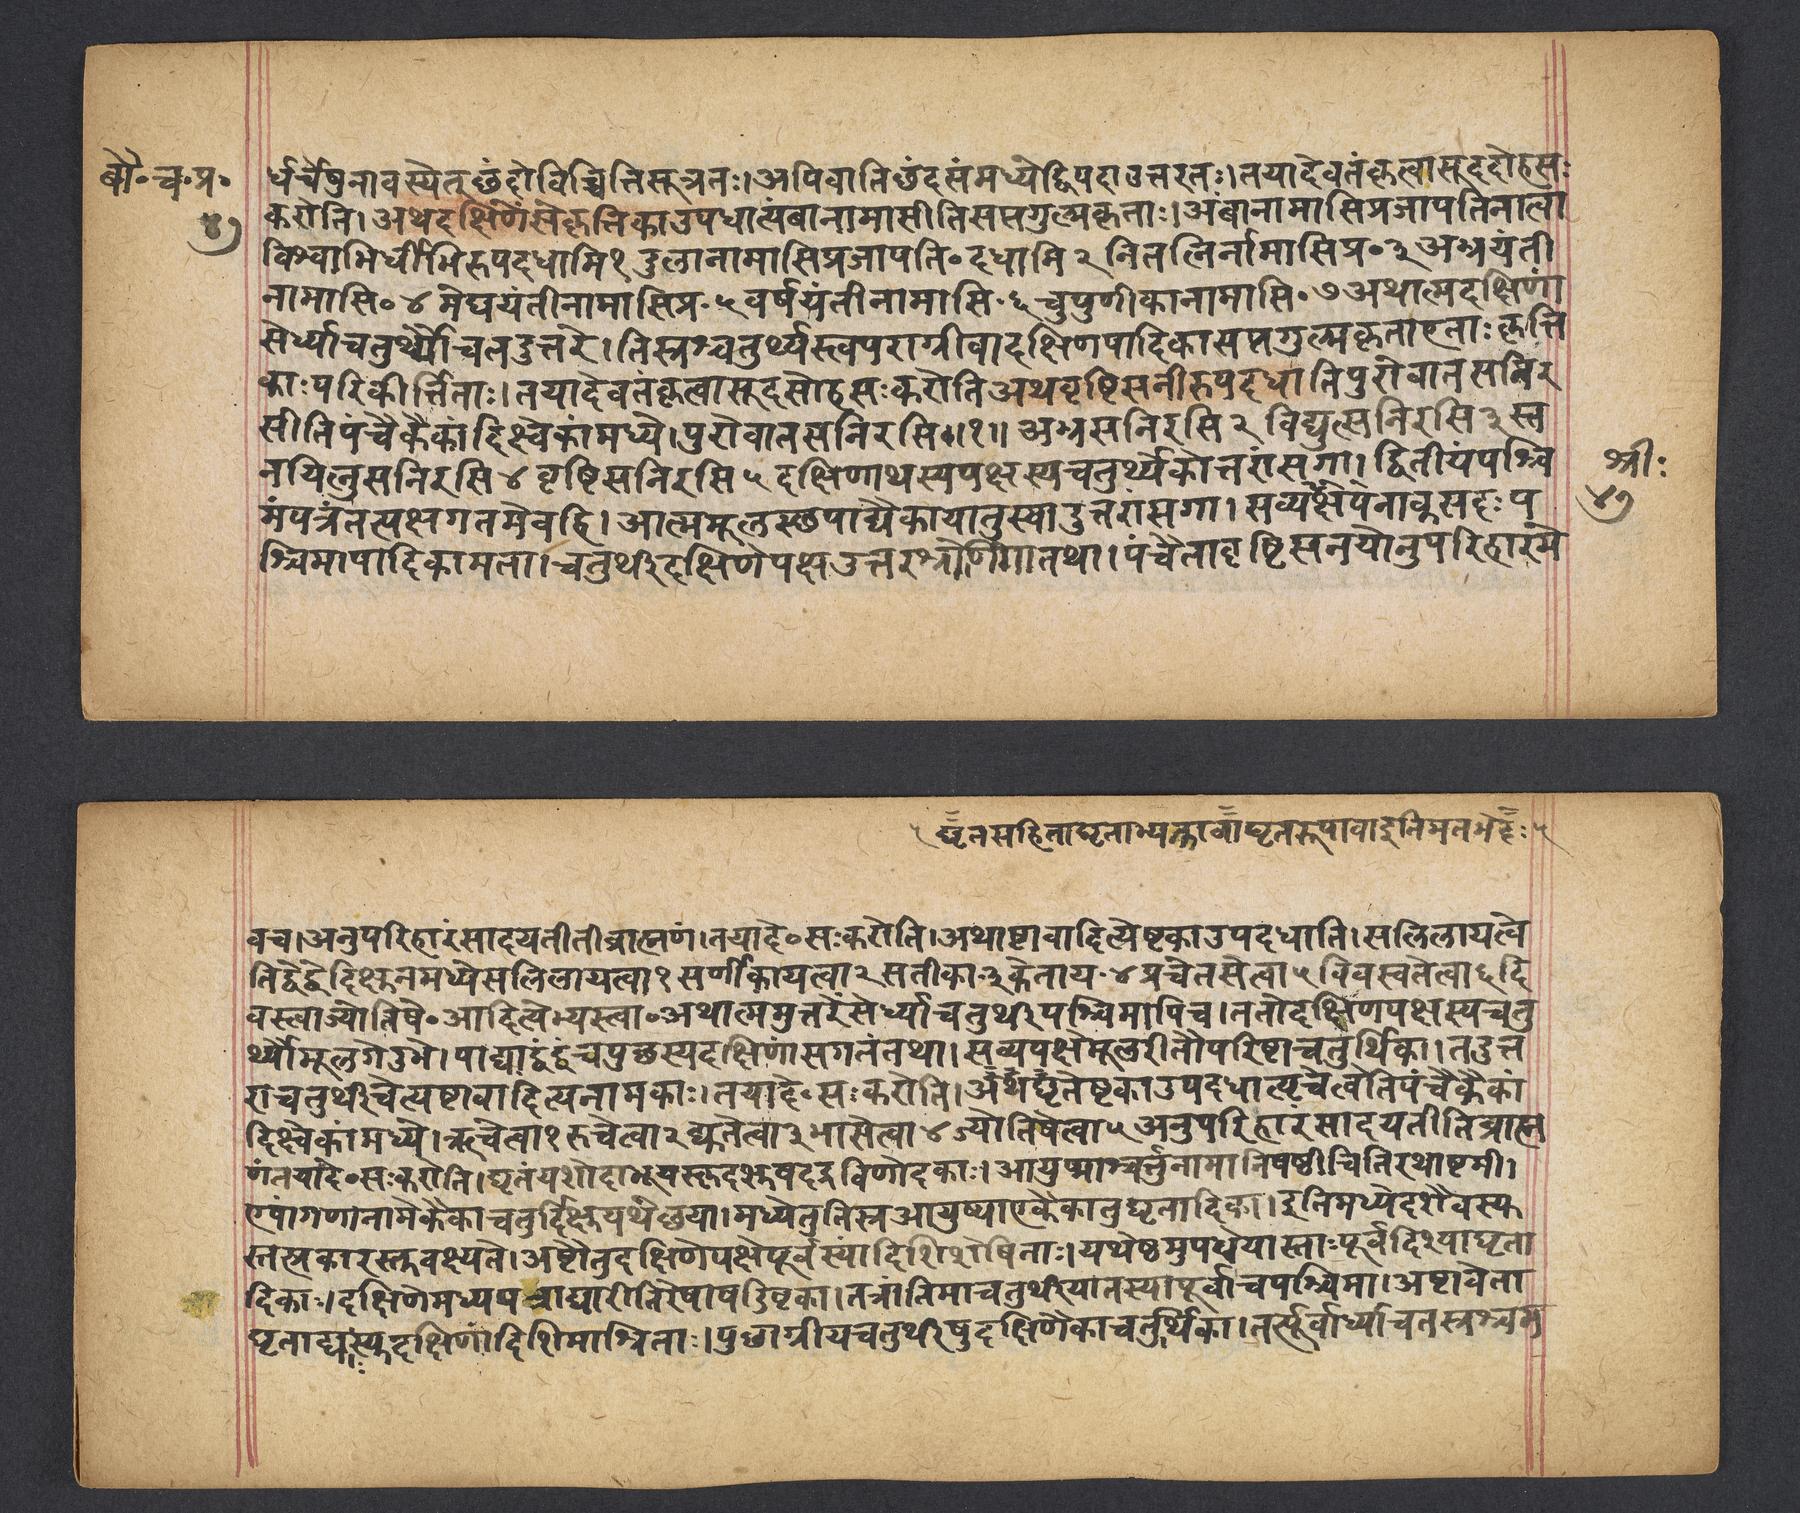 बौ॰च॰प्र॰
४७
र्धर्चेषुनावस्येत्छंदोविच्चित्तिसूत्रतः।अपिवातिछंदसंमध्येद्विपदाउत्तरतः।तयादेवतंकृत्वासूददोहसः
करोति।अथदक्षिणेंसेकृत्तिकाउपधात्यंबानामासीतिसप्तगुल्मकृताः।अंबानामासिप्रजापतिनात्वा
विश्वाभिर्धीभिरुपदधामि१दुलानामासिप्रजापति॰दधामि२नितत्निर्नामासिप्र॰३अभ्रयंती
नामासि॰४मेघयंतीनामासिप्र॰५वर्षयंतीनामासि॰६चुपुणीकानामासि॰७अथात्मदक्षिणां
सेर्ध्याचतुर्थ्यौचतदुत्तरे।तिस्रश्चतुर्थ्यस्त्वपराग्रीवादक्षिणपादिकासप्तगुल्मकृताएताःकृत्ति
काःपरिकीर्त्तिताः।तयादेवतंकृत्वासूदसोहसःकरोतिअथवृष्टिसनीरुपदधातिपुरोवातसनिर
सीतिपंचैकैकांदिक्ष्वेकांमध्ये।पुरोवातसनिरसि॥१॥अभ्रसनिरसि२विद्युत्सनिरसि३स्त
नयित्नुसनिरसि४वृष्टिसनिरसि५दक्षिणाथस्यपक्षस्यचतुर्थ्येकोत्तरांसगा।द्वितीयंपश्चि
श्रीः
४७
मंपत्रंतत्पक्षगतमेवहि।आत्ममूलस्छपाद्यैकायातुस्वाउत्तरांसगा।सव्यपक्षे
श्चिमापादिकामता।चतुर्थीदक्षिणेपक्षेउत्तरश्रोणिगातथा।पंचैतावृष्टिसनयोनुपरिहारमे
घृतसहिताघृताभ्यक्तावाघृतरूपावा
वच।अनुपरिहारंसादयतीतीब्राह्मणं।तयादे॰सःकरोति।अथाष्टावादित्येष्टकाउपदधाति।सलिलायत्वे
तिद्वेद्वेदिक्षुनमध्येसलिलायत्वा१सर्णीकायत्वा२सतीका॰३केताय॰४प्रचेतसेत्वा५विवस्वतेत्वा६दि
वस्त्वाज्योतिषे॰आदित्येभ्यस्त्वा॰अथात्ममुत्तरेंसेर्ध्याचतुर्थीपश्चिमापिच।ततोदक्षिणपक्षस्यचतु
र्थ्यौमूलगेउभे।पाद्याद्वंद्वंचपुच्छस्यदक्षिणांसगतंतथा।सव्यपक्षेमूलरीतौपरिष्टाच्चतुर्थिका।तदुत्त
राचतुर्थीचेत्यष्टावादित्यनामकाः।तयादे॰सःकरोति।अथघृतेष्टकाउपदधात्यृचेत्वेतिपंचैकैकां
दिक्ष्वेकांमध्ये।ऋचेत्वा१रुचेत्वा२द्युतेत्वा३भासेत्वा४ज्योतिषेत्वा५अनुपरिहारंसादयतीतिब्राह्म
णंतयादे॰सःकरोति।घृतंयशोदाभूयस्कृदप्सुषदद्रविणोदकाः।आयुष्माश्चर्त्तुनामानिषष्ठीचितिरथाष्टमी।
एषांगणानामेकैकाचतुर्दिक्षुयथेछया।मध्येतुतिस्रआयुष्याएकैकातुघृतादिका।इतिमध्येदशैवस्यु
स्तत्प्रकारस्तुवक्ष्यते।अष्टौतुदक्षिणेपक्षेपूर्वस्यांदिशिशेषिताः।यथेष्ठमुपधेयास्ताःपूर्वदिश्याघृता
दिकाः।दक्षिणेमध्यपत्राद्यारीतिरेषाषडिष्टका।तत्रांतिमाचतुर्थीयातस्यापूर्वाचपश्चिमा।अष्टावेता
घृताद्याःस्युदक्षिणांदिशिमाश्रिताः।पुछाग्रीयचतुर्थीषुदक्षिणैकाचतुर्थिका।